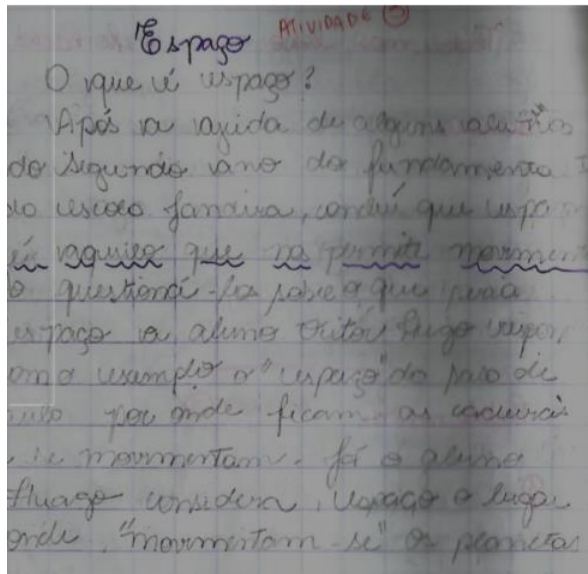 Espaço ATIVIDADE 3
O que é espaço?
Após a ajuda de alguns alunos
do segundo ano do fundamento
escola, conclui que espa
é aquilo que nos permite movimen
o questioná-los sobre o que
espaço o aluno Vitor Hugo
exemplo o "espaço" da sala de
por onde ficam as cadeiras
se movimentam. Já o aluno
considera, espaço o lugar
onde, "movimentam-se" os planetas